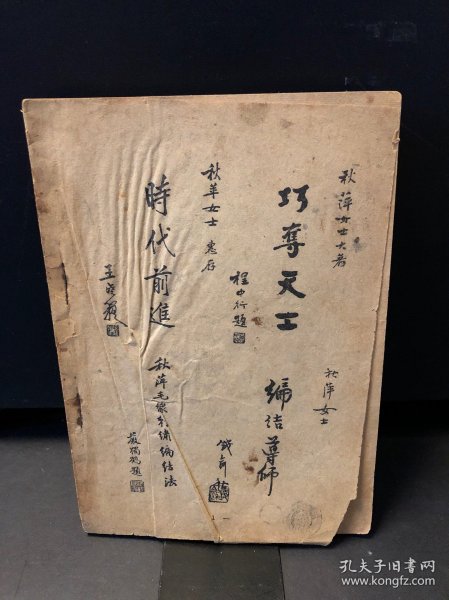 秋萍女士大著
巧奪天工
程中行題
秋萍女士
編結導師
錢
秋萍女士惠存
時代前進
王
秋萍毛線刺繡編結法
嚴獨鶴題
孔夫子旧书网
www.kongfz.com